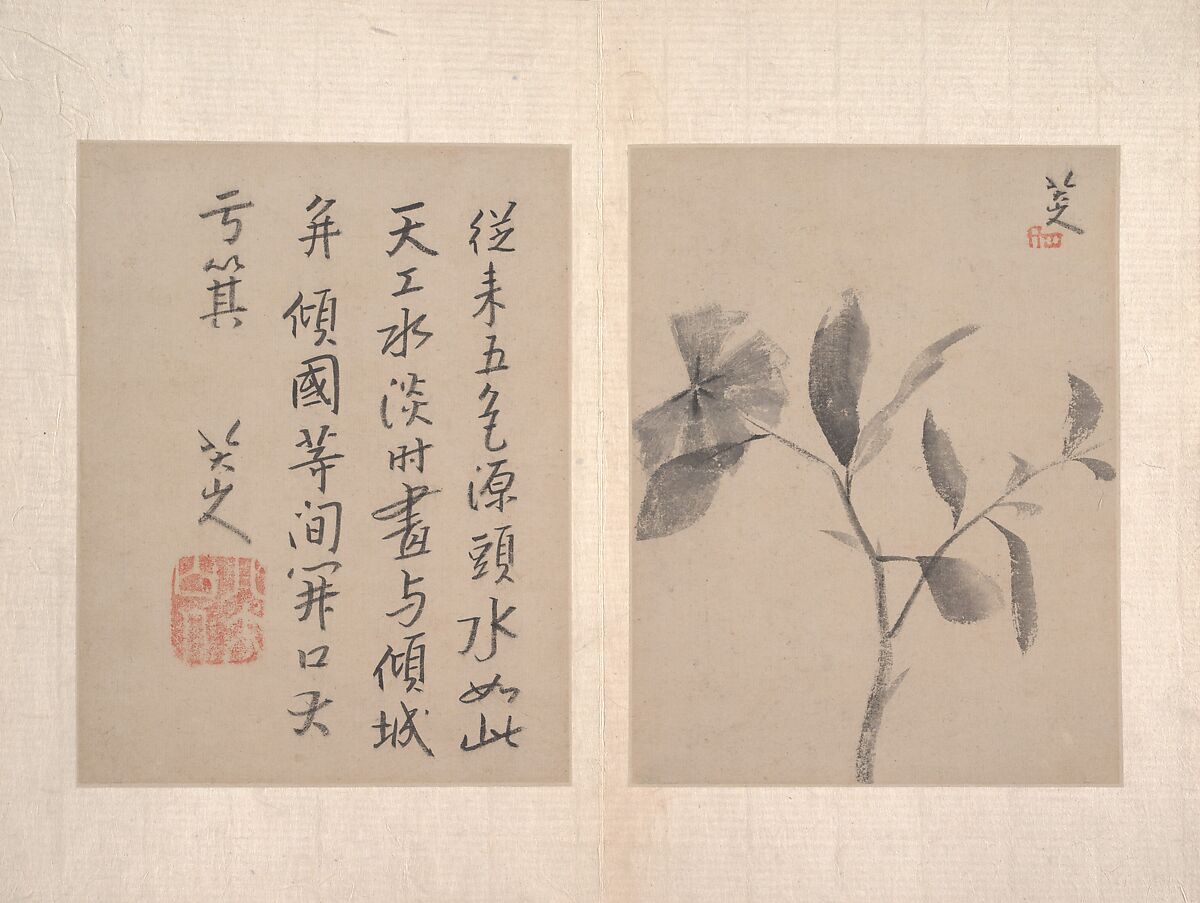 従来五色源頭水如此
天工水淡时畫与傾城
并傾國等间開口大
亏箕
八大山人
八大山人